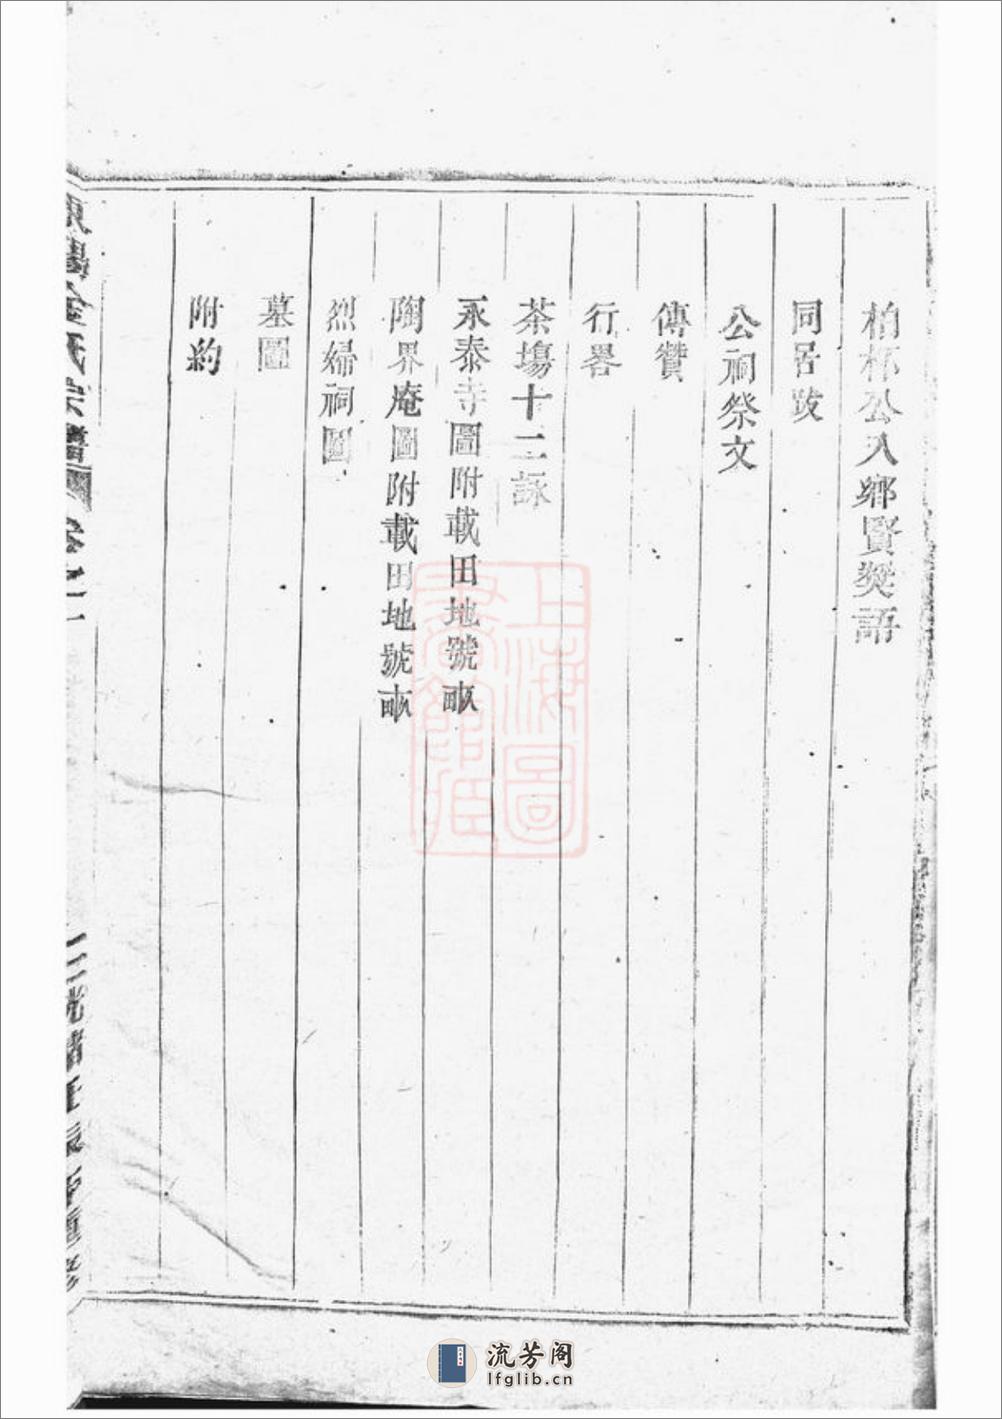 柏林公入鄉賢獎語
同呂跋
公祠祭文
傳贊
行畧
茶塲十二詠
永泰寺圖附載田地號畝
陶界庵圖附載田地號畝
烈婦祠圖
墓圖
附約
金氏宗譜
卷之一
上海圖書館
流芳阁
lfglib.cn